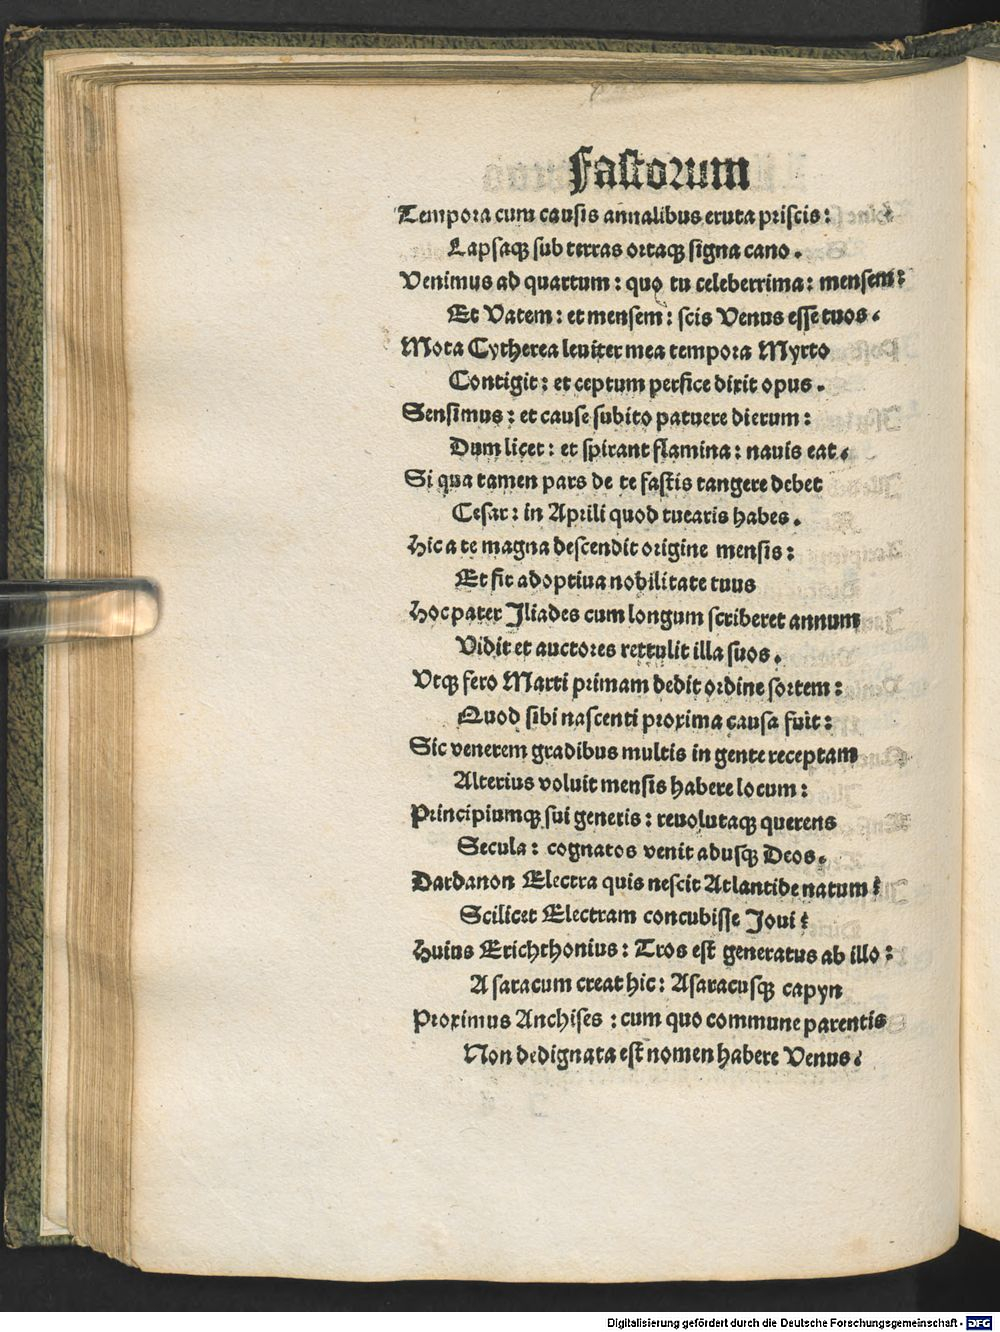 Fastorum
Tempora cum causis annalibus eruta priscis:
Lapsaqꝫ sub terras ortaqꝫ signa cano.
Venimus ad quartum: quo tu celeberrima: mensem:
Et Vatem: et mensem: scis Venus esse tuos.
Mota Cytherea leuiter mea tempora Myrto
Contigit: et ceptum perfice dixit opus.
Sensimus: et cause subito patuere dierum:
Dum licet: et spirant flamina: nauis eat.
Si qua tamen pars de te fastis tangere debet
Cesar: in Aprili quod tuearis habes.
Hic a te magna descendit origine mensis:
Et fit adoptiua nobilitate tuus
Hoc pater Iliades cum longum scriberet annum
Vidit et auctores rettulit illa suos.
Vtqꝫ fero Marti primam dedit ordine sortem:
Quod sibi nascenti proxima causa fuit:
Sic venerem gradibus multis in gente receptam
Alterius voluit mensis habere locum:
Principiumqꝫ sui generis: reuolutaqꝫ querens
Secula: cognatos venit adusqꝫ Deos.
Dardanon Electra quis nescit Atlantide natum?
Scilicet Electram concubisse Joui?
Huius Erichthonius: Tros est generatus ab illo:
Asaracum creat hic: Asaracusqꝫ capyn
Proximus Anchises: cum quo commune parentis
Non dedignata est nomen habere Venus.
Digitalisierung gefördert durch die Deutsche Forschungsgemeinschaft - DFG